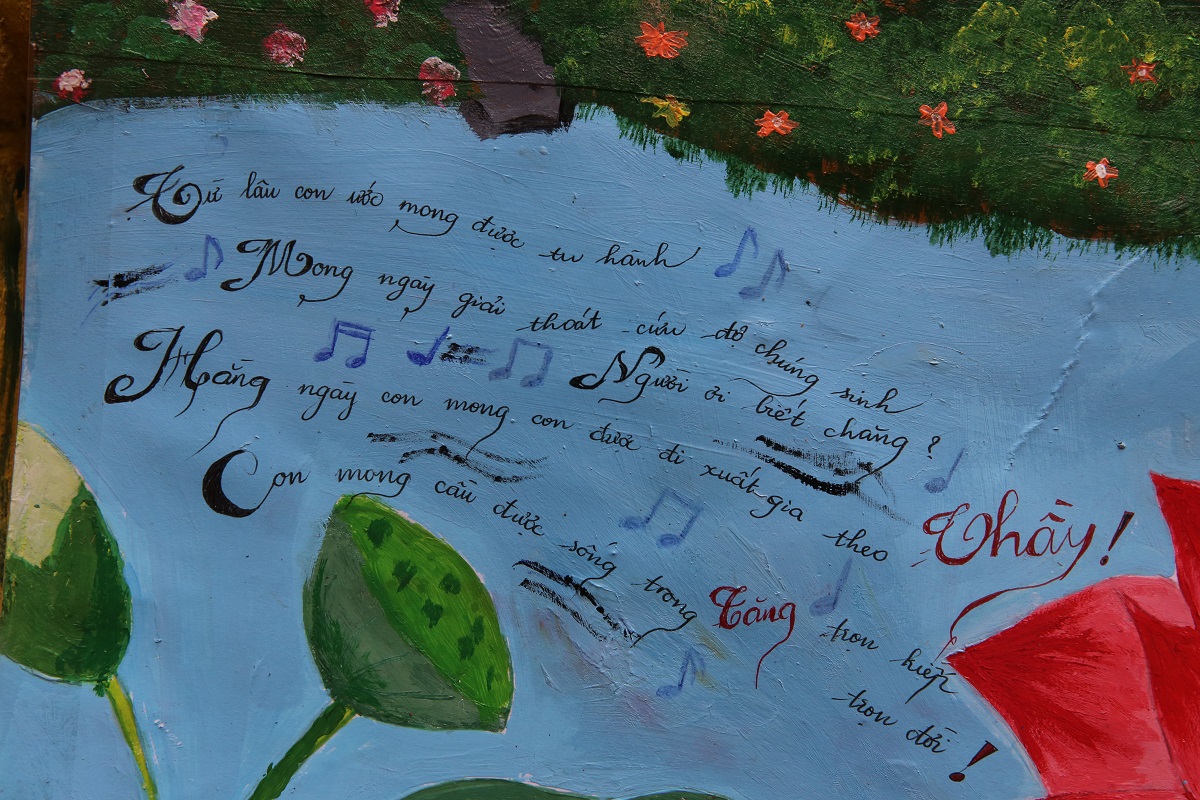 Từ lâu con ước mong được tu hành
Mong ngày giải thoát cứu độ chúng sinh
Người ơi biết chăng?
Hằng ngày con mong con được đi xuất gia theo Thầy!
Con mong cầu được sống trong Tăng trọn kiếp
trọn đời!